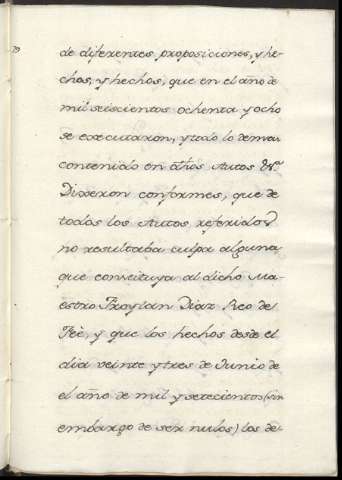 de diferentes proposiciones, y he-
chos, y hechos, que en el año de
mil seiscientos ochenta y ocho
se executaron, y todo lo demas
contenido en dhõs Autos &.ª
Dixeron conformes, que de
todos los Autos referidos
no resultaba culpa alguna
que constituya al dicho Ma-
estro Froylan Diaz Reo de
Feè, y que los hechos desde el
dia veinte y tres de Junio de
el año de mil y setecientos (sin
embargo de ser nulos) los de-